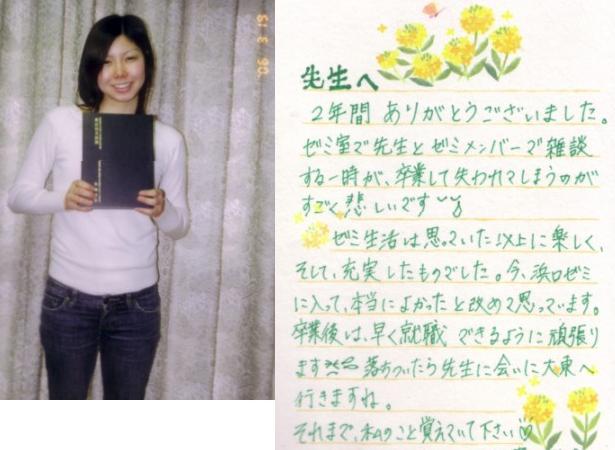 '06 3 19
先生へ
2年間 ありがとうございました。
ゼミ室で先生とゼミメンバーで雑談
する一時が、卒業して失われてしまうのが
すごく悲しいです
ゼミ生活は思っていた以上に楽しく、
そして、充実したものでした。今、浜口ゼミ
に入って、本当によかったと改めて思っています。
卒業後は、早く就職 できるように頑張り
ます 落ちついたら先生に会いに大東へ
行きますね。
それまで、私のこと覚えていて下さい♡